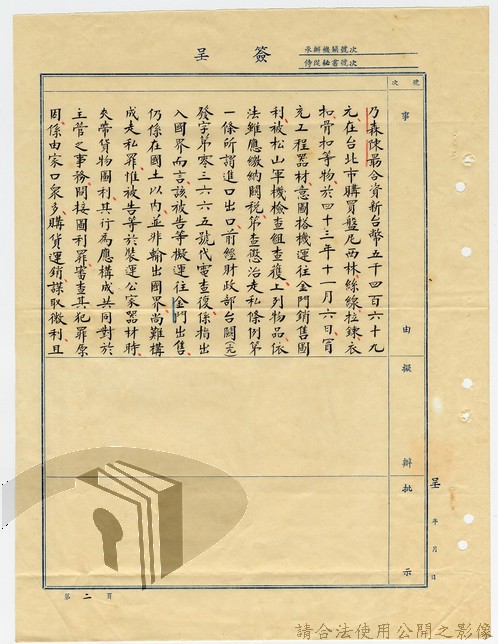 簽呈
承辦機關號次
侍從秘書號次
號次
事由
擬辦
批示
呈 年 月 日
乃森陳勗合資新台幣五千四百六十九
元、在台北市購買盤尼西林絲線、拉鍊、衣
扣、骨扣等物於四十三年十一月六日、冒
充工程器材意圖搭機運往金門銷售圖
利、被松山軍機檢查組查獲、上列物品、依
法雖應繳納關稅、第查懲治走私條例第
一條所謂進口出口、前經財政部台關(元)
發字第零三六六五號代電查復、係指出
入國界而言、該被告等擬運往金門出售、
仍係在國土以內、並非輸出國界、尚難構
成走私罪、惟被告等於裝運公家器材時
夾帶貨物圖利、其行為應構成共同對於
主管之事務、間接圖利罪、審查其犯罪原
因、係由家口眾多、購貨運銷謀取微利、且
第二頁
請合法使用公開之影像